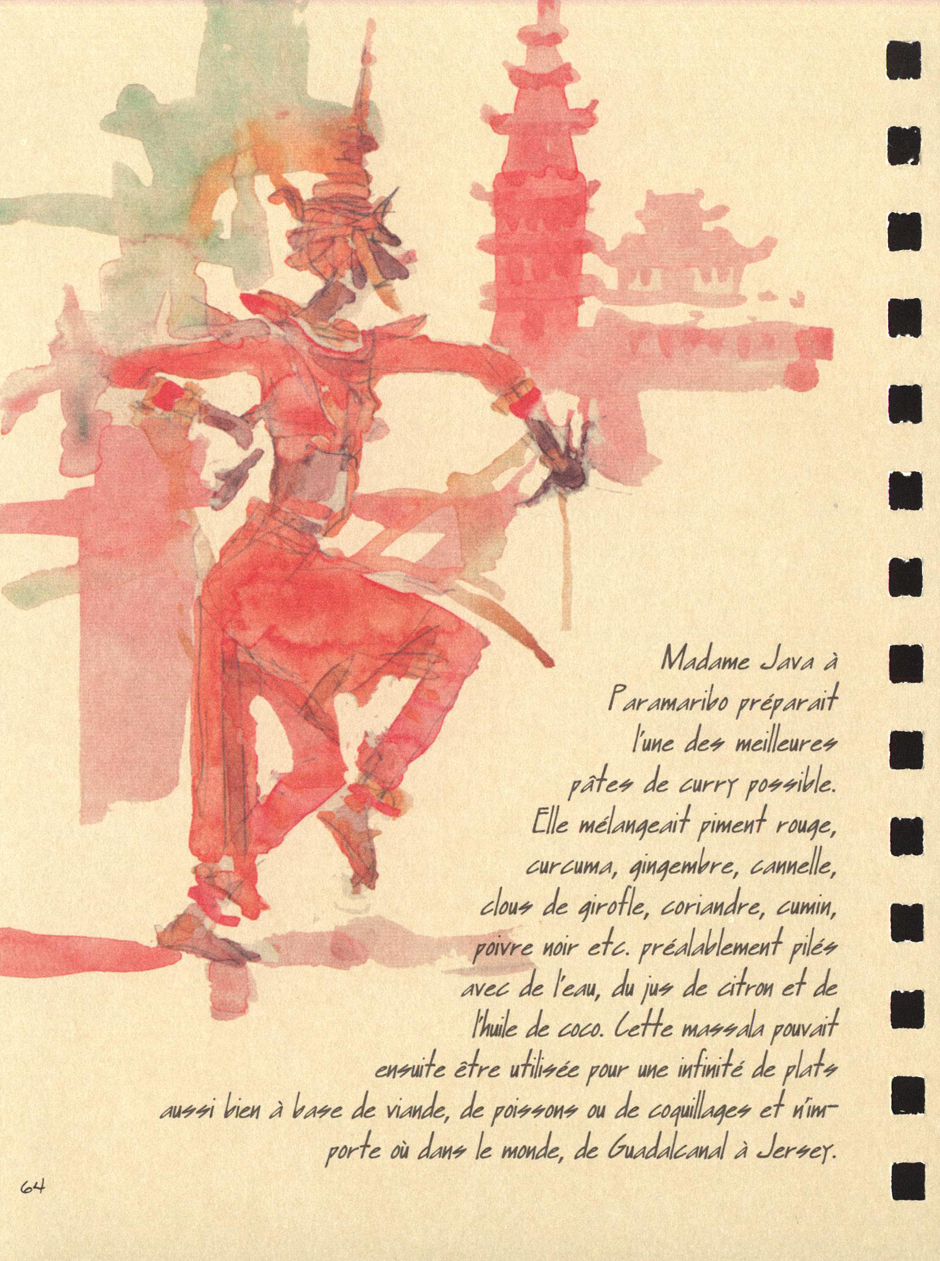 Madame Java à
Paramaribo préparait
l'une des meilleures
pâtes de curry possible.
Elle mélangeait piment rouge,
curcuma, gingembre, cannelle,
clous de girofle, coriandre, cumin,
poivre noir etc. préalablement pilés
avec de l'eau, du jus de citron et de
l'huile de coco. Cette massala pouvait
ensuite être utilisée pour une infinité de plats
aussi bien à base de viande, de poissons ou de coquillages et n'im-
porte où dans le monde, de Guadalcanal à Jersey.
64